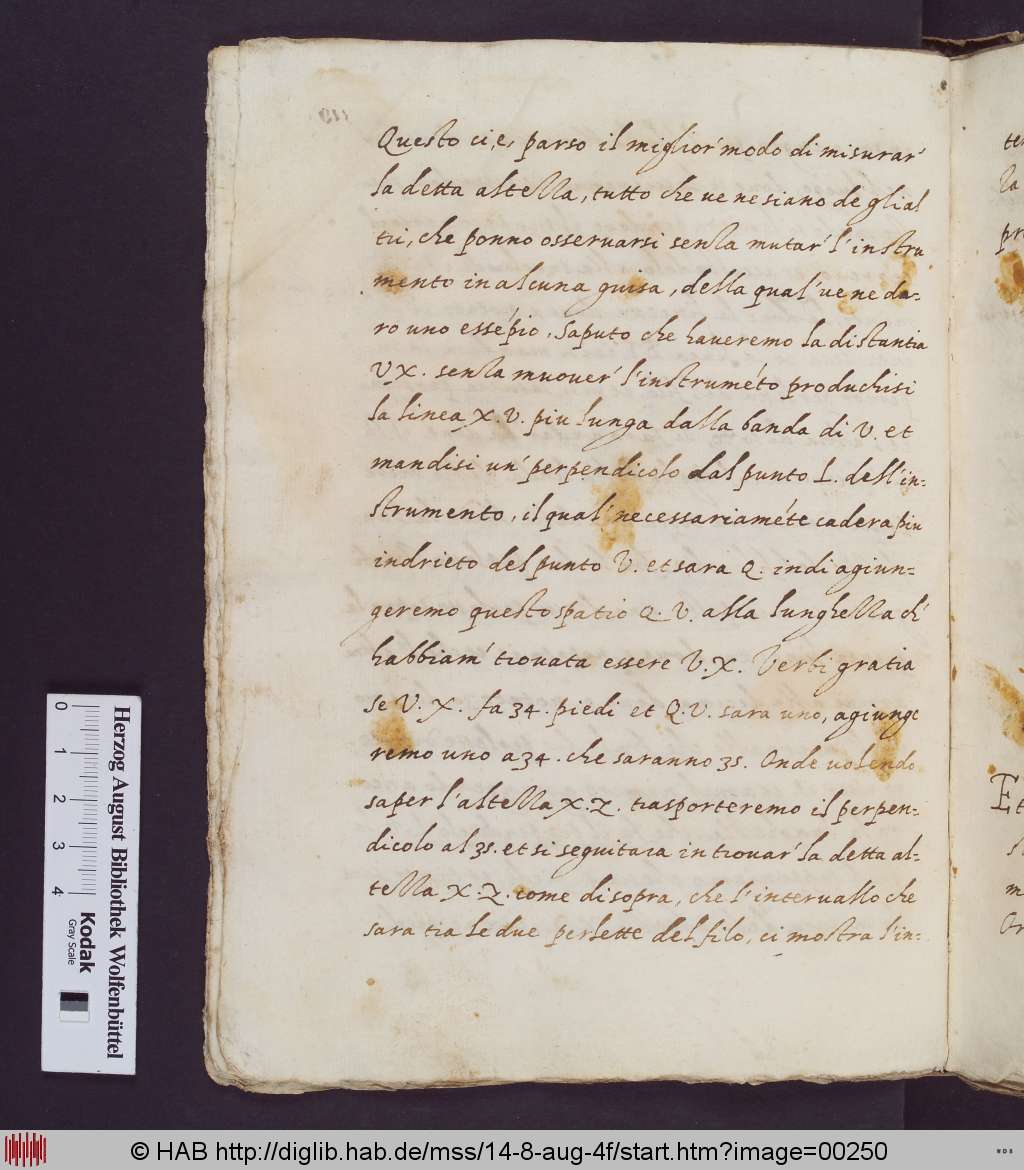 Questo ci, e, parso il miglior' modo di misurar'
la detta altezza, tutto che ue ne siano de gli al
tri, che ponno osseruarsi senza mutar' l' instru
mento in alcuna guisa, della qual' ue ne da-
ro uno essépio. Saputo che haueremo la distantia
V X. senza muouer' l'instruméto produchisi
la linea X. V. piu lunga dalla banda di V. et
mandisi un' perpendicolo dal punto L. dell' in=
strumento, il qual' necessariaméte cadera piu
indrieto del punto V. et sara Q. indi agiun=
geremo questo spatio Q. V. alla lunghezza ch'
habbiam' trouata essere V. X. Verbi gratia
se V. X. fa 34. piedi et Q. V. sara uno, agiunge
remo uno a 34. che saranno 35. Onde uolendo
saper l'altezza X. Z. trasporteremo il perpen=
dicolo al 35. et si seguitara in trouar' la detta al=
tezza X. Z. come di sopra, che l'interuallo che
sara tra le due perlette del filo, ci mostra l'in=
Herzog August Bibliothek Wolfenbüttel
Kodak
Gray Scale
0 1 2 3 4
te
la
pr
Et
m
Or
© HAB http://diglib.hab.de/mss/14-8-aug-4f/start.htm?image=00250